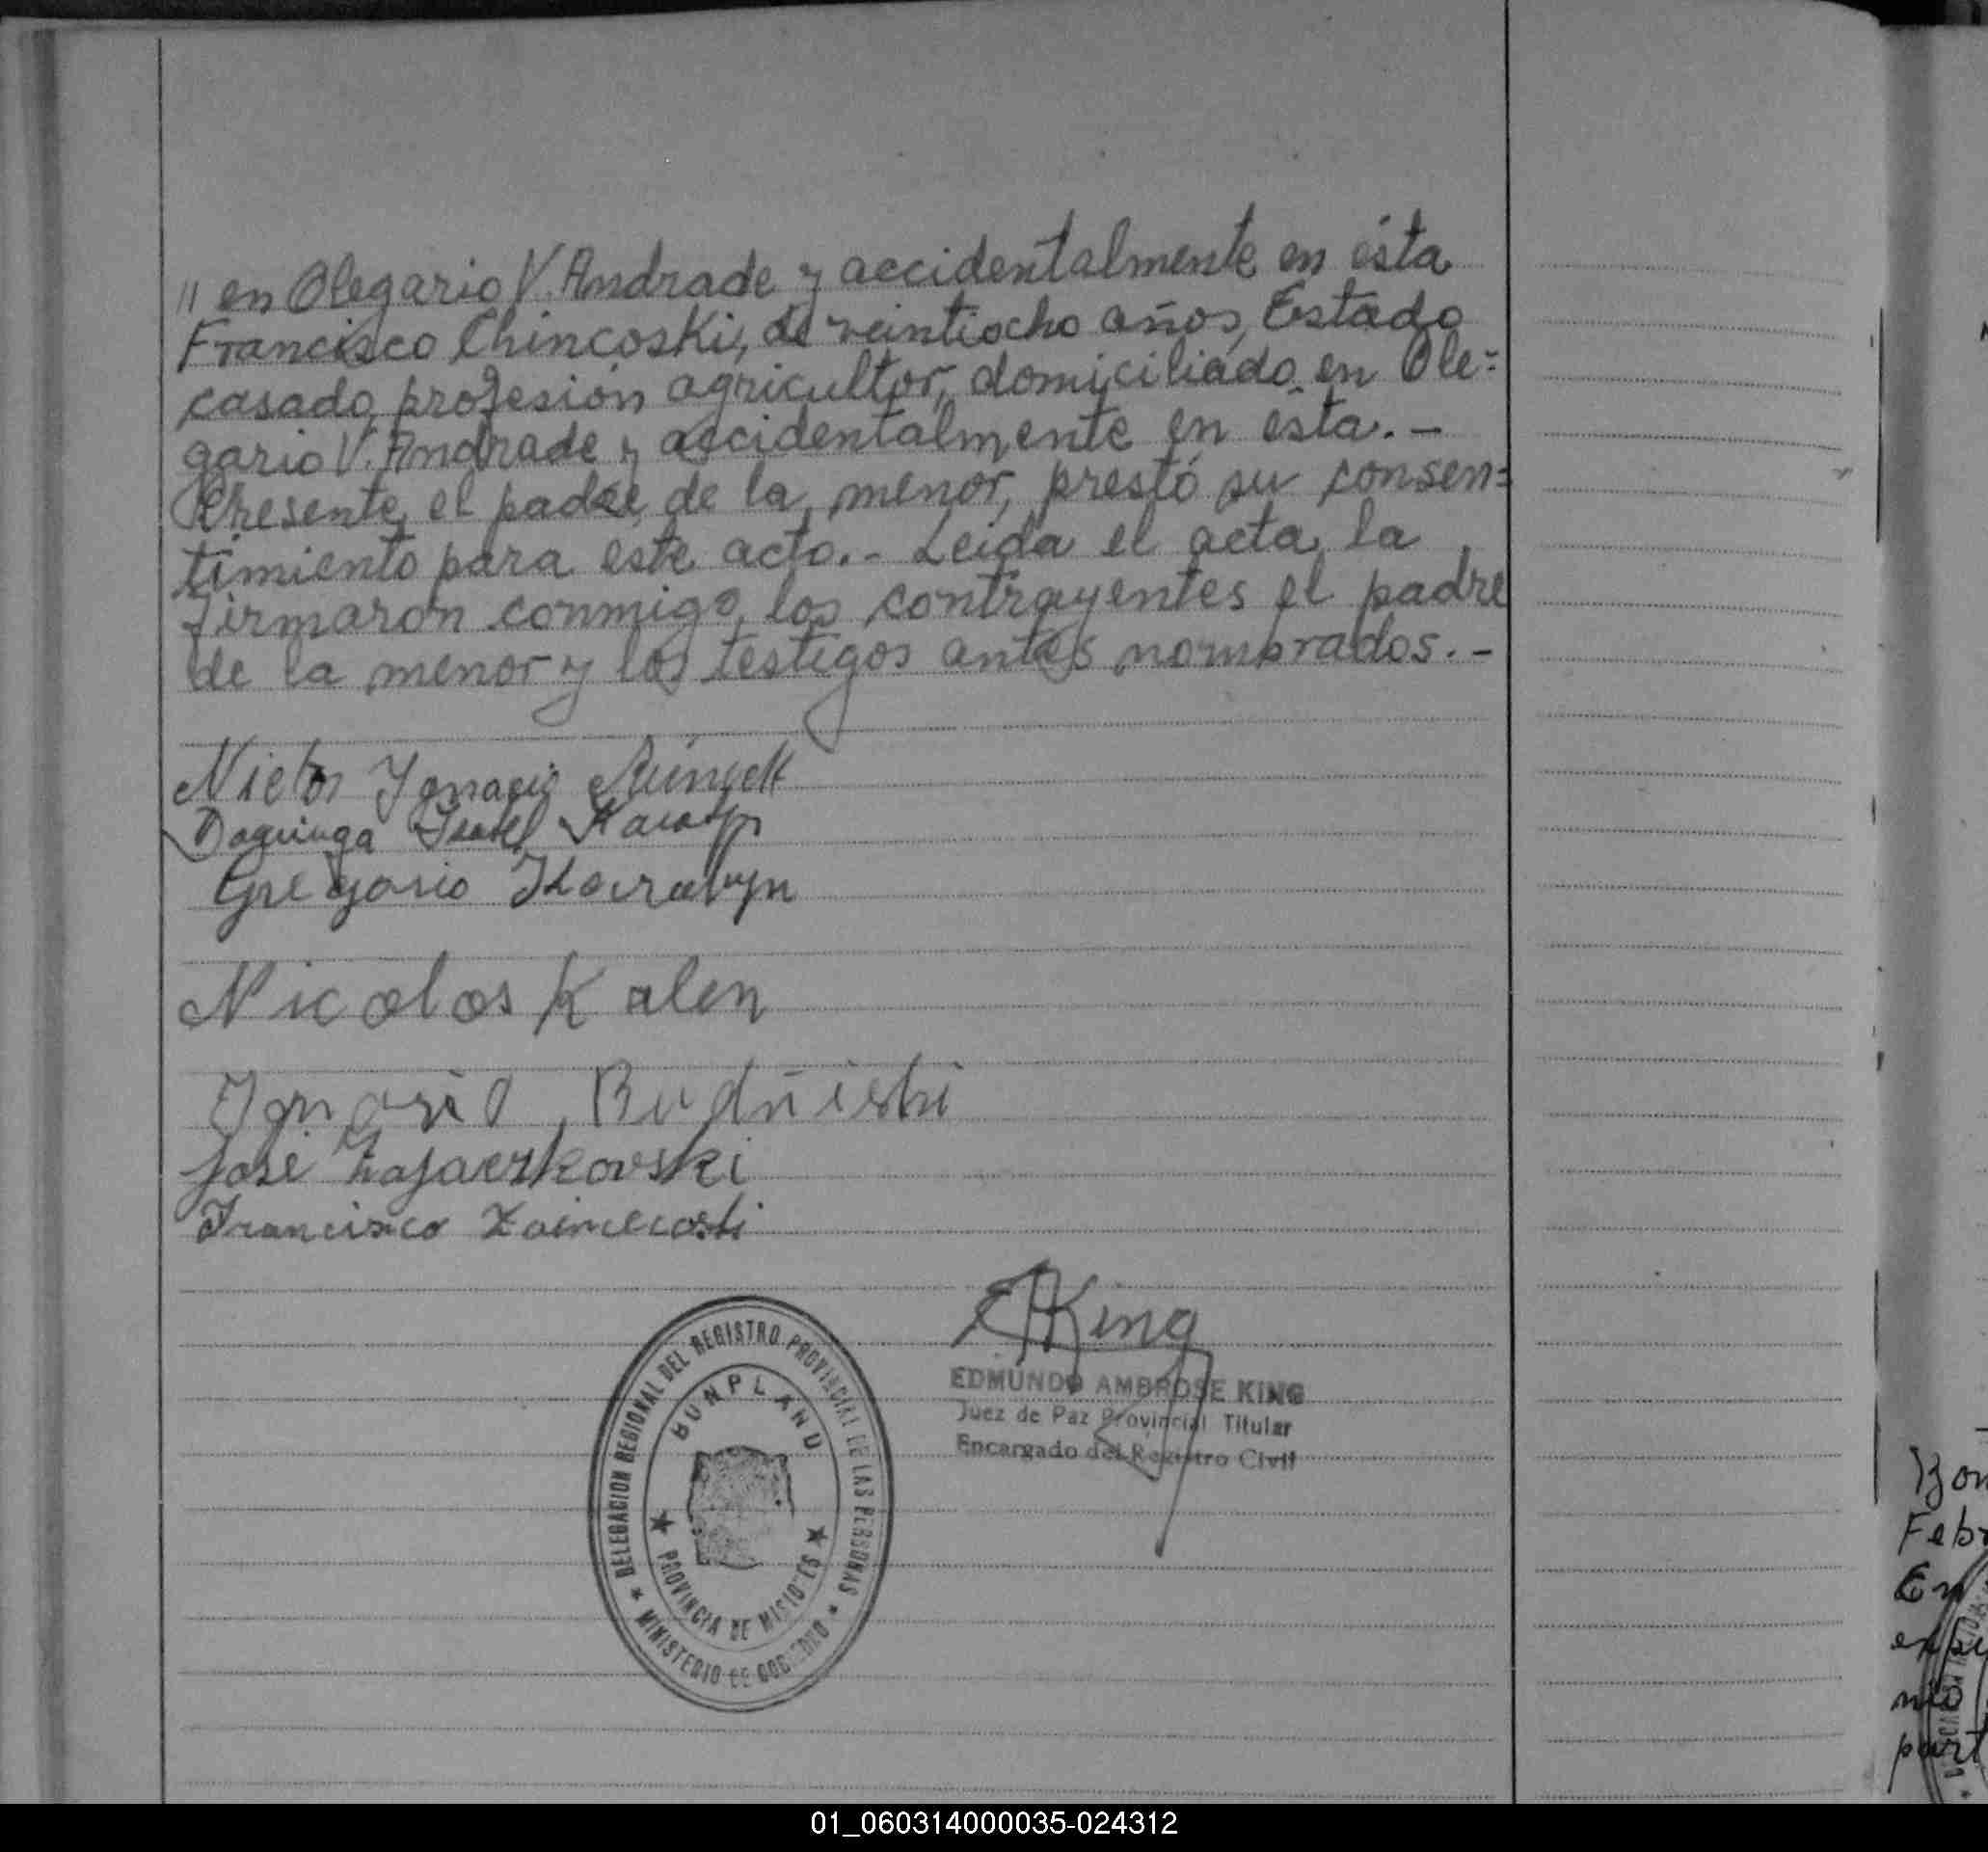 " en Olegario V. Andrade y accidentalmente en ésta
Francisco Chincoski, de veintiocho años, Estado
casado, profesión agricultor, domiciliado en Ole=
gario V. Andrade y accidentalmente en ésta.-
Presente, el padre de la menor, prestó su consen=
timiento para este acto.- Leída el acta, la
firmaron conmigo, los contrayentes el padre
de la menor y los testigos antes nombrados.-
Ignacio
Isabel
Gregorio
Nicolas Kalen
Budñiski
José Zajaczkovski
Francisco
EKing
EDMUNDO AMBROSE KING
Juez de Paz Provincial Titular
Encargado del Registro Civil
DELEGACION REGIONAL DEL REGISTRO PROVINCIAL DE LAS PERSONAS
BONPLAND
PROVINCIA DE MISIONES
MINISTERIO DE GOBIERNO
Bon
Febr
En
nio
part
01_060314000035-024312